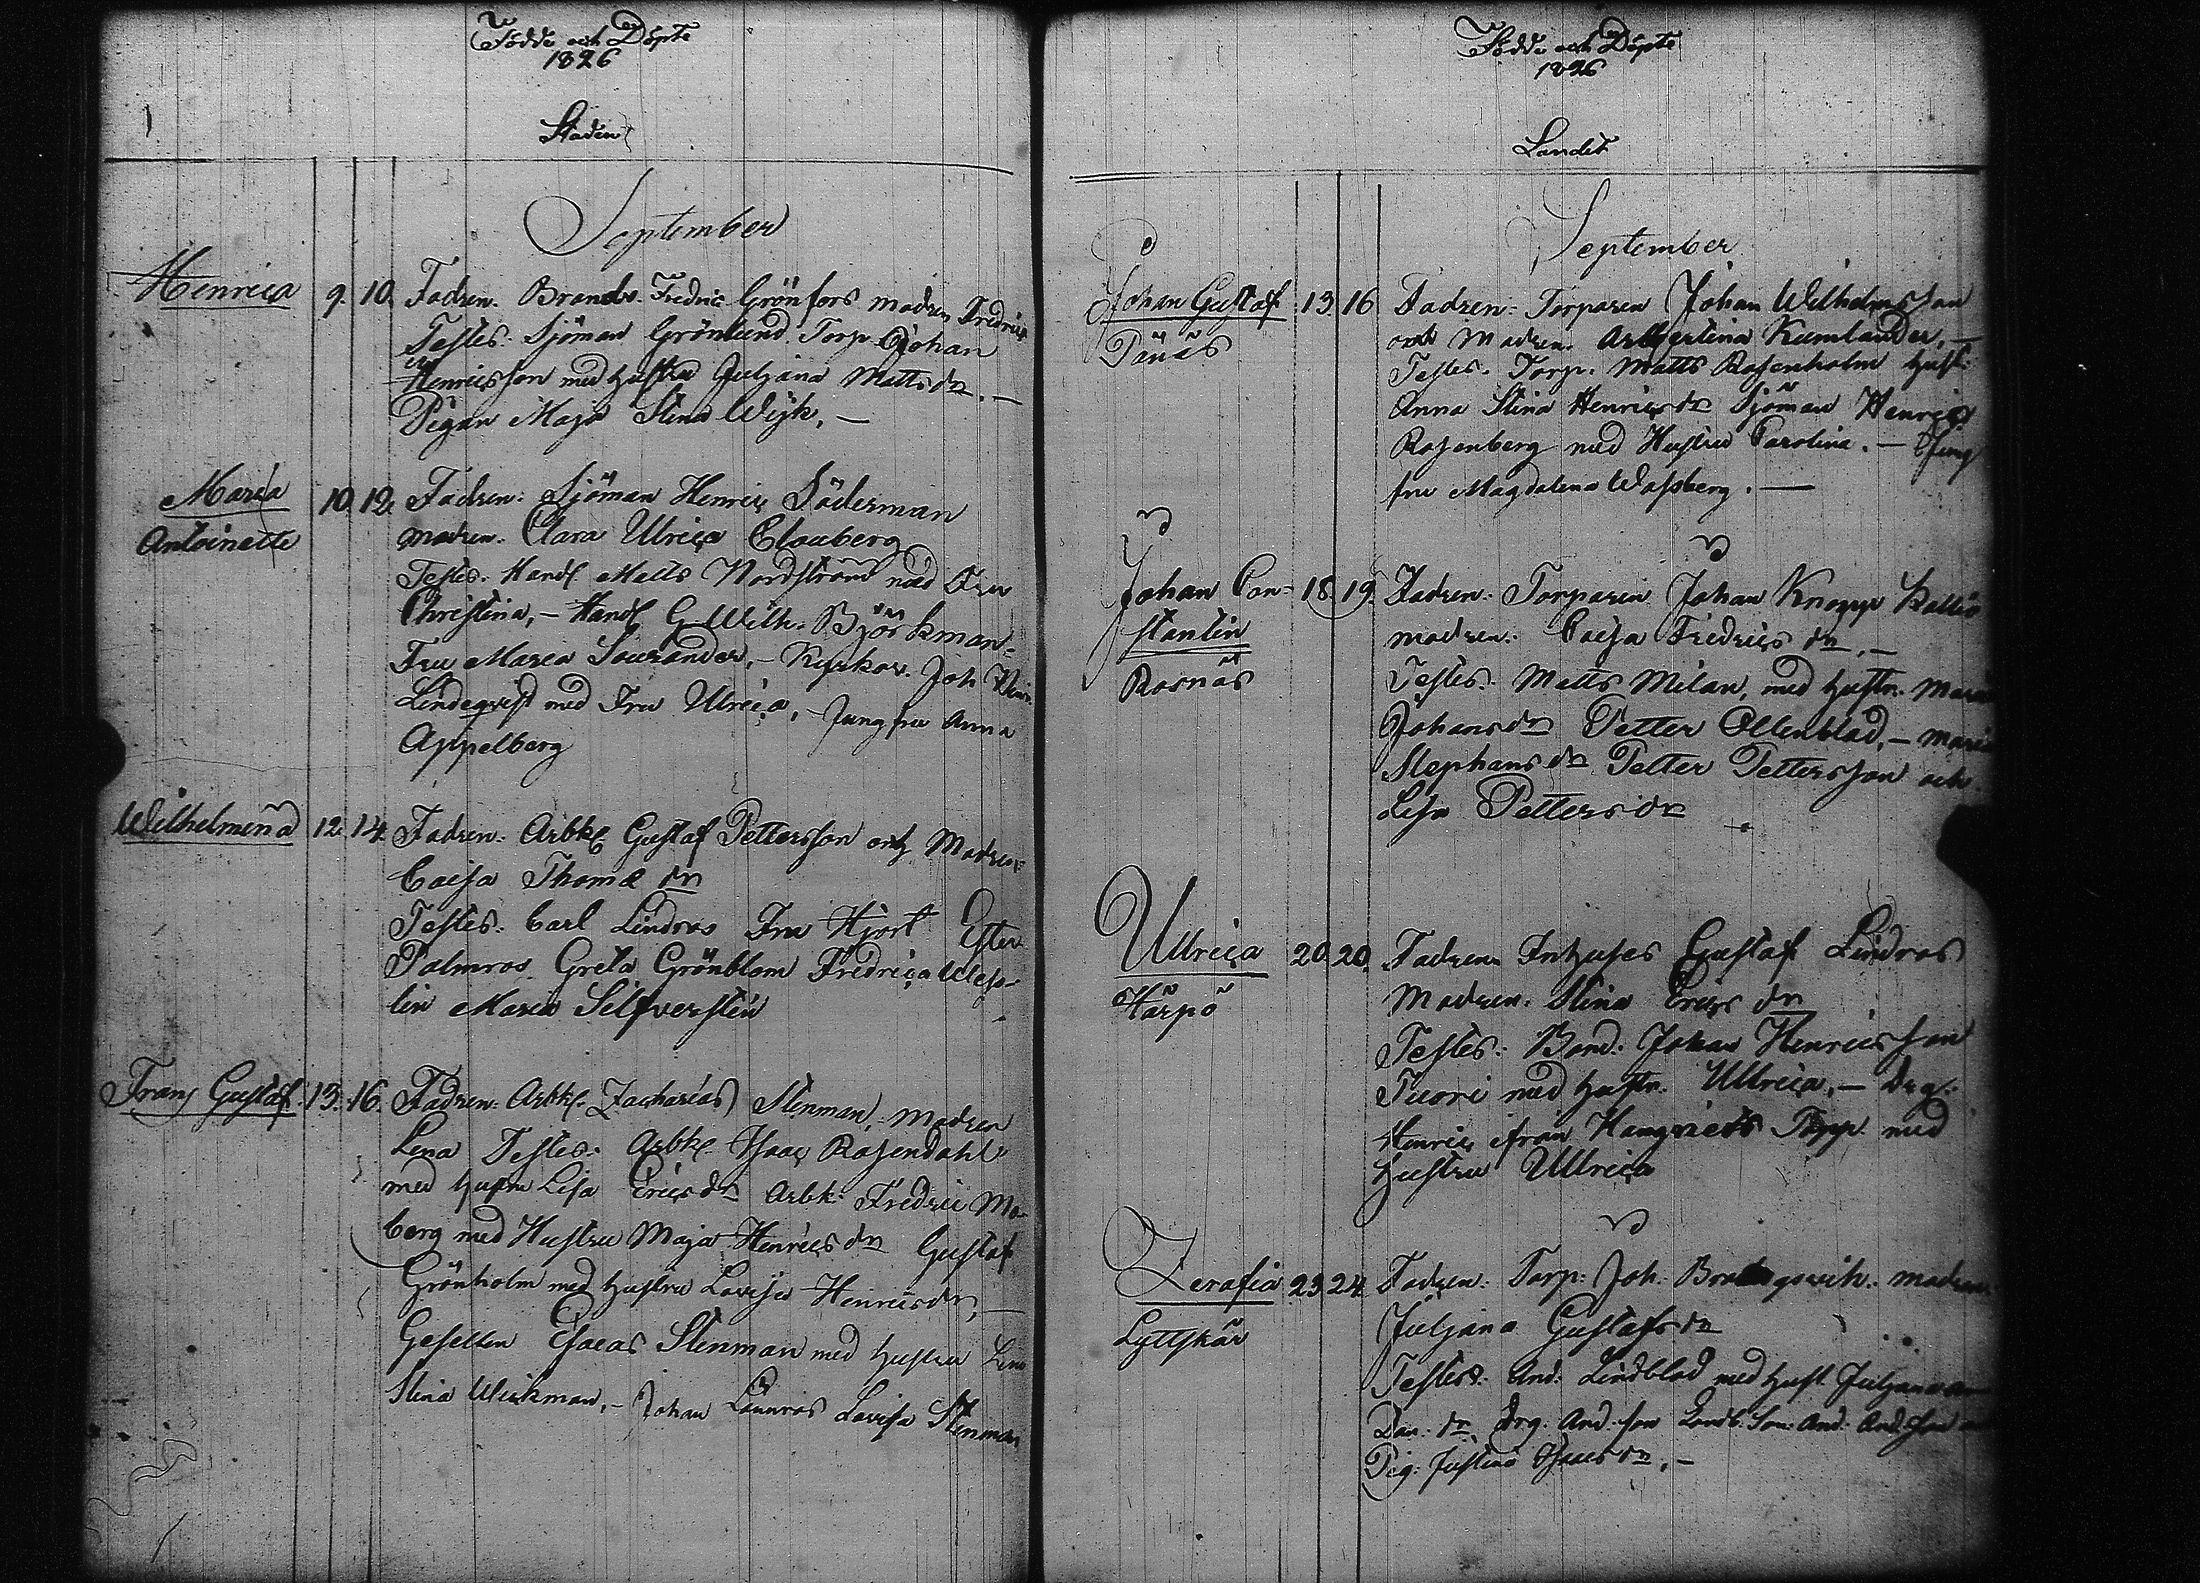 Födde och Döpte
1826
Staden
September
Henrica 9. 10. Fadren. Brandv. Fredric Grönfors modren Fredrica
Testes. Sjöman Grönlund. Torp. Johan
Henricsson med hustru Juljana Mattsdr. —
Pigan Maja Stina Wijk. —
Maria 10. 12. Fadren. Sjöman Henric Söderman
Antoinette modren. Clara Ulrica Clouberg
Testes. Handl. Matts Nordström med Fru
Christina, — Handl G. Wilh. Björkman
Fru Maria Sourander, — Kyrkov. Joh
Lindeqvist med Fru Ulrica, — Jungfru Anna
Appelberg
Wilhelmina 12. 14. Fadren. Arbk. Gustaf Pettersson och Modren
Caisa Thomædr
Testes. Carl Lindros Fru Hjort Ester
Palmros Greta Grönblom Fredrica Wess-
lin Maria Silfversten
Frans Gustaf. 13. 16. Fadren. Arbk. Zacharias Stenman, modren
Lena Testes. Arbk. Isaac Rosendahl
med hustru Lisa Ericsdr Arbk. Fredric Mo-
berg med Hustru Maja Henricsdr Gustaf
Grönholm med hustru Lovisa Henricsdr, —
Gesellen Esaias Stenman med hustru Lena
Stina Wickman, — Johan Lönnros Lovisa Stenman
Födde och Döpte
1826
Landet
September
Johan Gustaf 13 16 Fadren. Torparen Johan Wilhelmsson
Pinäs och Modren. Albertina Kumlander, —
Testes. Torp. Matts Rosenholm hust:
Anna Stina Henricsdr Sjöman Henric
Rosenberg med Hustru Carolina. — Jung
fru Magdalena Wassberg. —
Johan Con- 18. 19. Fadren. Torparen Johan Knopp
stantin modren. Caisa Fredricsdr. —
Rosnäs Testes. Matts Milan, med hustr. Maria
Johansdr Petter Ollenblad, — Maria
Stephansdr Petter Pettersson och
Lisa Pettersdr
Ullrica 20. 20. Fadren Inhyses Gustaf Lindros
Härpö Modren. Stina Ericsdr
Testes: Bond. Johan Henricsson
Tuori med hustr. Ullrica, — Drg:
Henric ifrån Torp. med
hustru Ullrica
Zerafia 23 24. Fadren: Torp: Joh. modren
Lyttskär Juljana Gustafsdr
Testes. And. Lindblad med hust Juljana
Dan. dr. Drg. And. son Landb. Son. And. And.son
Pig: Justina Isacsdr, —